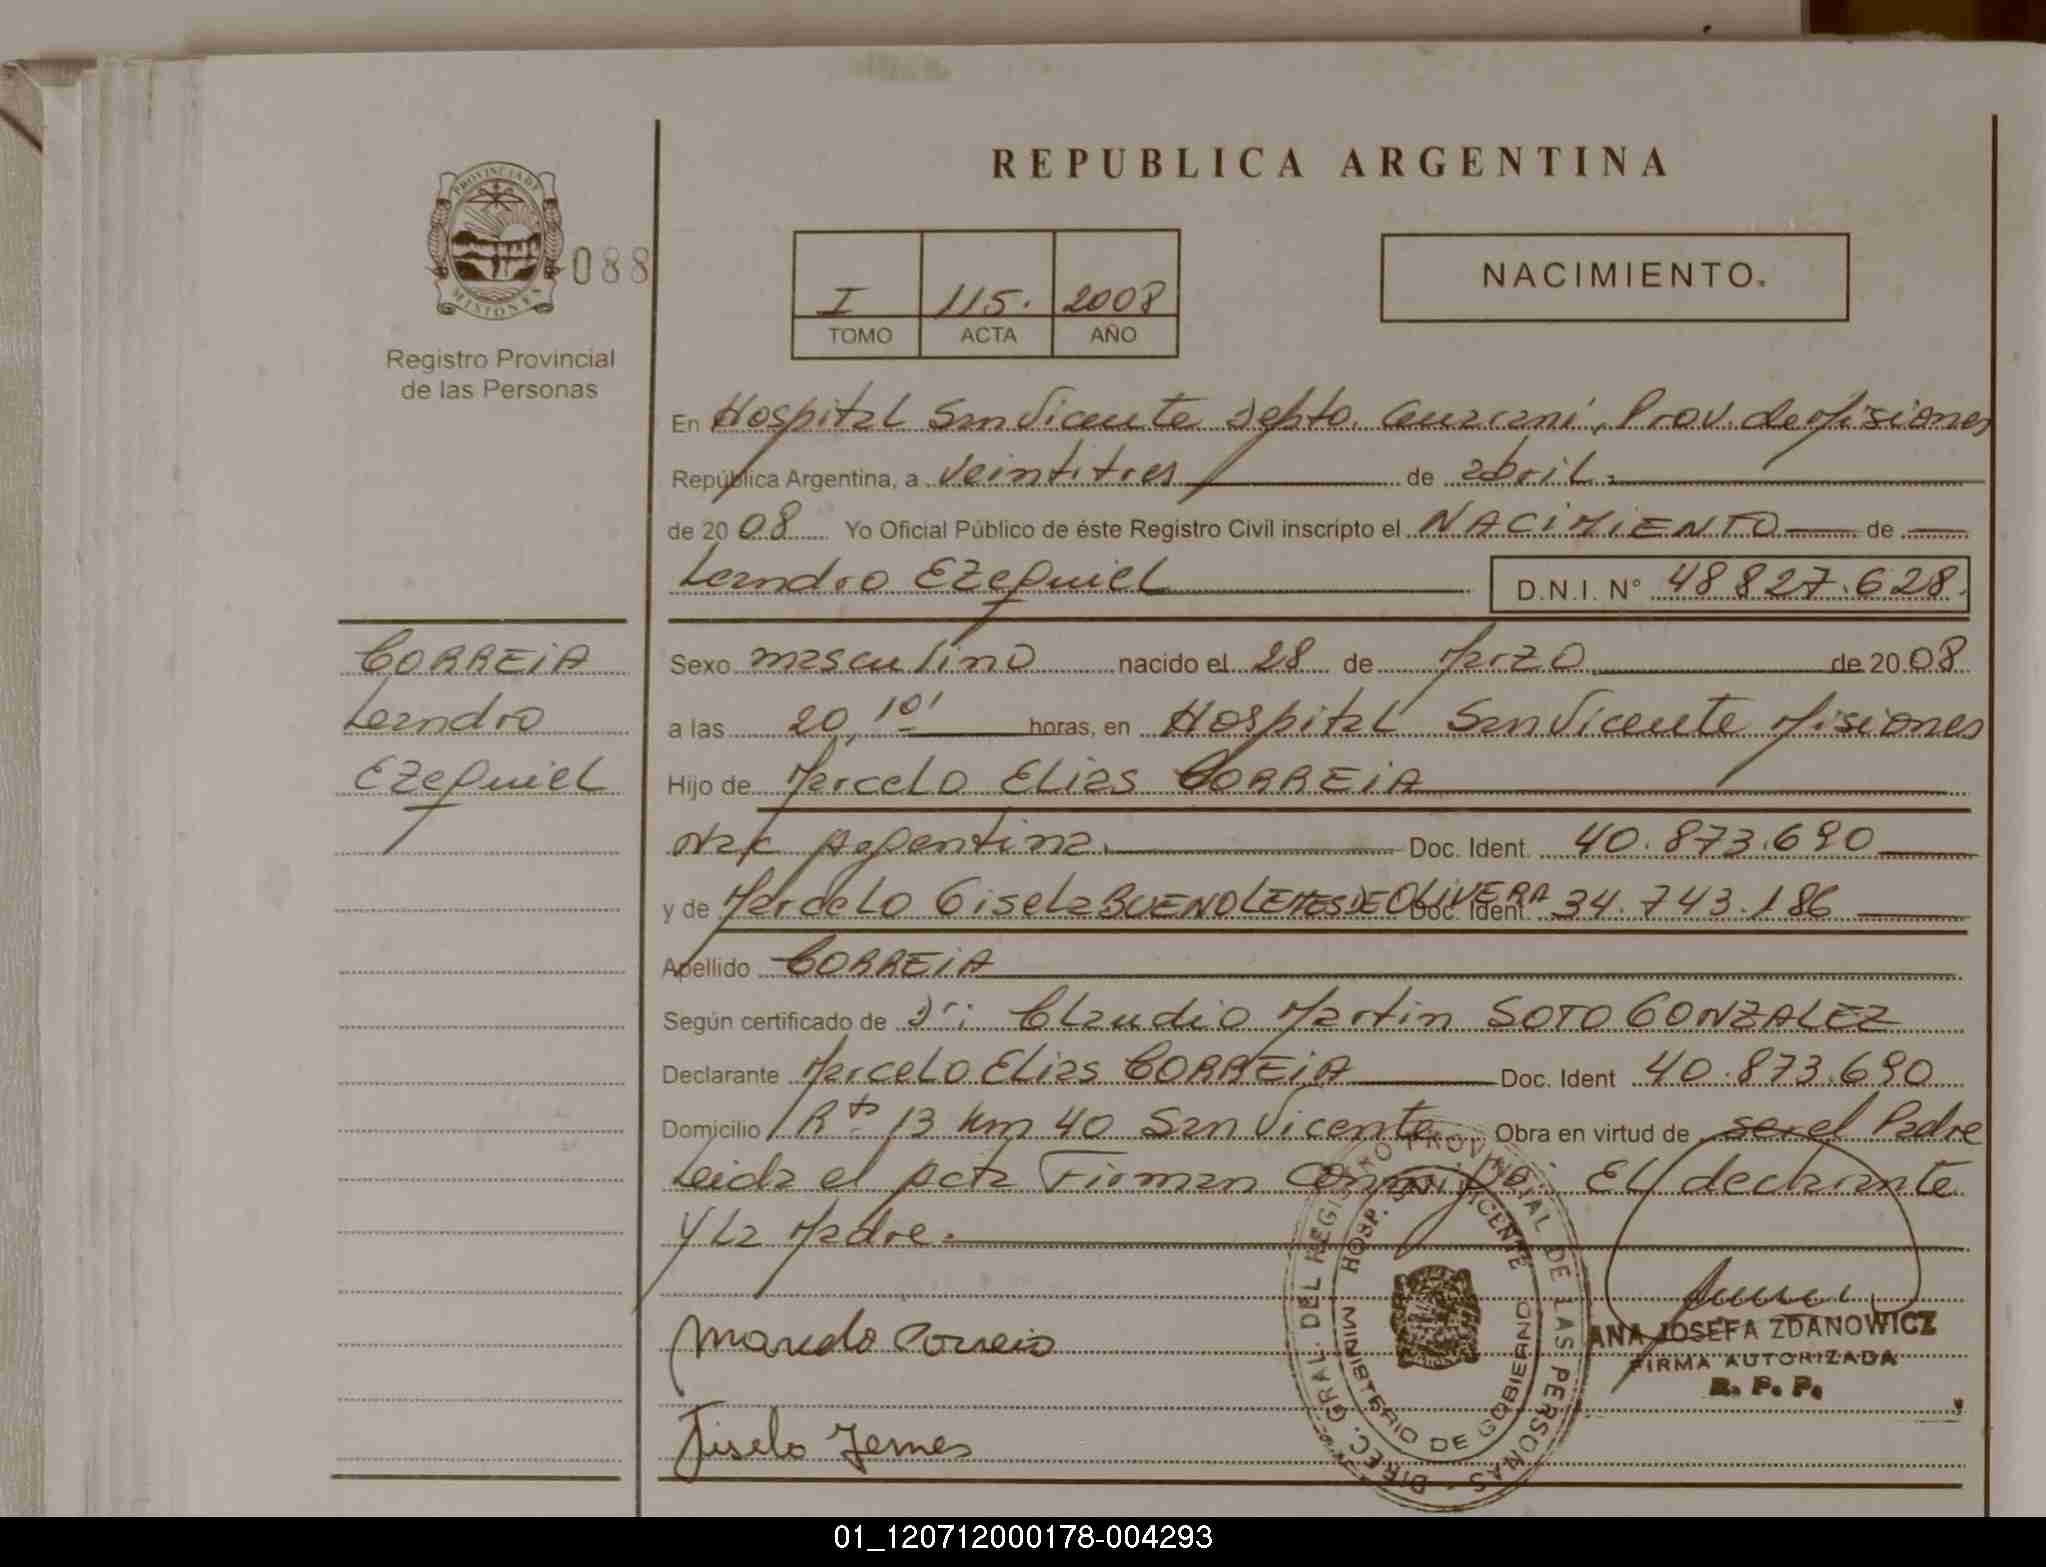 REPUBLICA ARGENTINA
PROVINCIA DE
MISIONES
088
Registro Provincial
de las Personas
I 115. 2008
TOMO ACTA AÑO
NACIMIENTO.
En Hospital San Vicente Depto. Guarani, Prov. de Misiones
República Argentina, a Veintitres de abril.
de 2008 Yo Oficial Público de éste Registro Civil inscripto el NACIMIENTO de
Leandro Ezequiel D.N.I. N° 48827.628.
CORREIA
Leandro
Ezequiel
Sexo masculino nacido el 28 de Marzo de 2008
a las 20,10' horas, en Hospital San Vicente Misiones
Hijo de Marcelo Elias CORREIA
Nac Argentina. Doc. Ident. 40.873.690
y de Marcela Gisela BUENO LEMES DE OLIVERA Doc. Ident. 34.743.186
Apellido CORREIA
Según certificado de Dr: Claudio Martin SOTO GONZALEZ
Declarante Marcelo Elias CORREIA Doc. Ident 40.873.690
Domicilio Rta 13 Km 40 San Vicente Obra en virtud de ser el Padre
Leida el Acta Firman Conmigo: El declarante
y La Madre.
DIREC. GRAL. DEL REGISTRO PROVINCIAL DE LAS PERSONAS
HOSP. VICENTE
MINISTERIO DE GOBIERNO
Marcelo Correia
ANA JOSEFA ZDANOWICZ
FIRMA AUTORIZADA
R. P. P.
Gisela Lemes
01_120712000178-004293